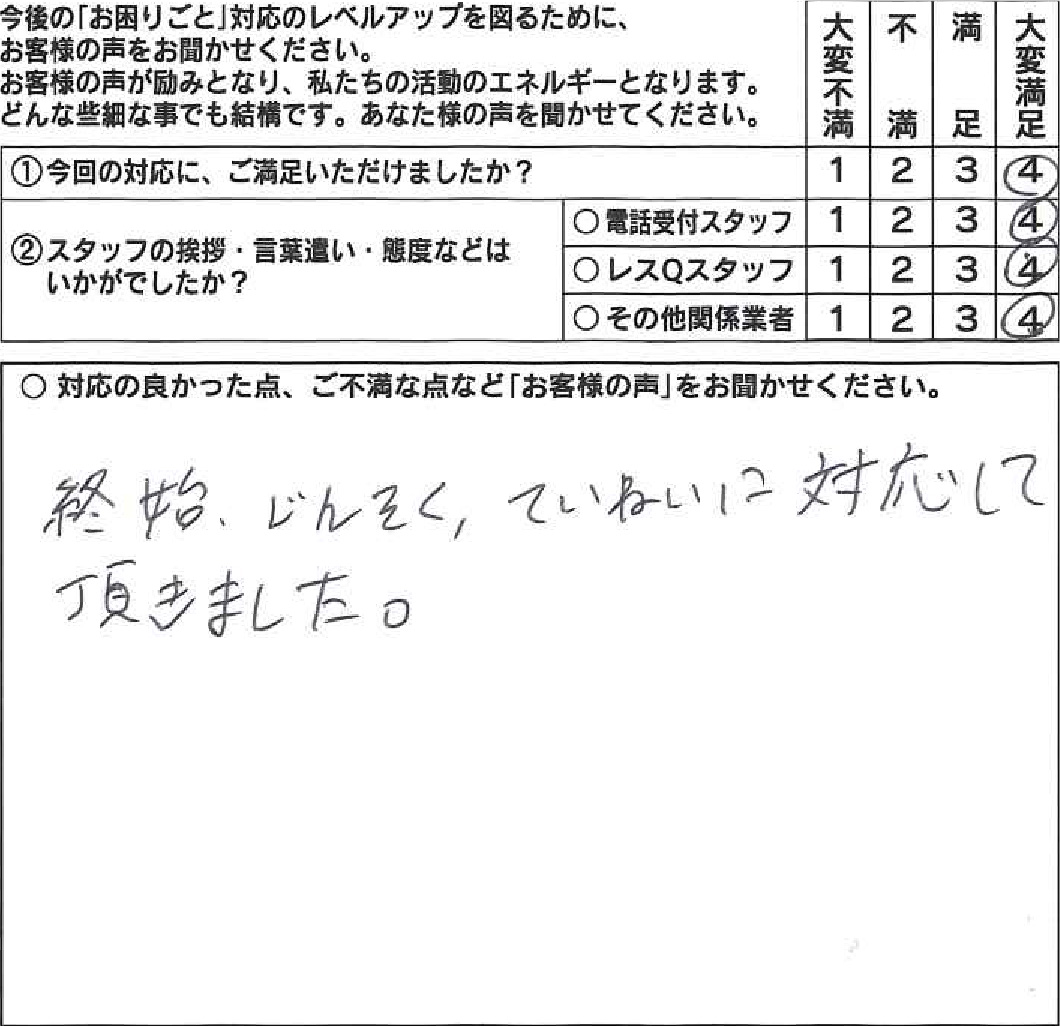 今後の「お困りごと」対応のレベルアップを図るために、
お客様の声をお聞かせください。
お客様の声が励みとなり、私たちの活動のエネルギーとなります。
どんな些細な事でも結構です。あなた様の声を聞かせてください。
大変不満 不満 満足 大変満足
①今回の対応に、ご満足いただけましたか？ 1 2 3 4
②スタッフの挨拶・言葉遣い・態度などは
いかがでしたか？
○電話受付スタッフ 1 2 3 4
○レスQスタッフ 1 2 3 4
○その他関係業者 1 2 3 4
○ 対応の良かった点、ご不満な点など「お客様の声」をお聞かせください。
終始、じんそく，ていねいに対応して
頂きました。